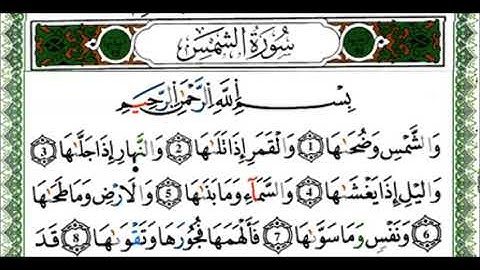 سُورَةُ الشَّمْسِ
بِسْمِ اللَّهِ الرَّحْمَٰنِ الرَّحِيمِ
وَالشَّمْسِ وَضُحَىٰهَا ﴿1﴾ وَالْقَمَرِ إِذَا تَلَىٰهَا ﴿2﴾ وَالنَّهَارِ إِذَا جَلَّىٰهَا ﴿3﴾
وَاللَّيْلِ إِذَا يَغْشَىٰهَا ﴿4﴾ وَالسَّمَآءِ وَمَا بَنَىٰهَا ﴿5﴾ وَالْأَرْضِ وَمَا طَحَىٰهَا
﴿6﴾ وَنَفْسٍ وَمَا سَوَّىٰهَا ﴿7﴾ فَأَلْهَمَهَا فُجُورَهَا وَتَقْوَىٰهَا ﴿8﴾ قَدْ